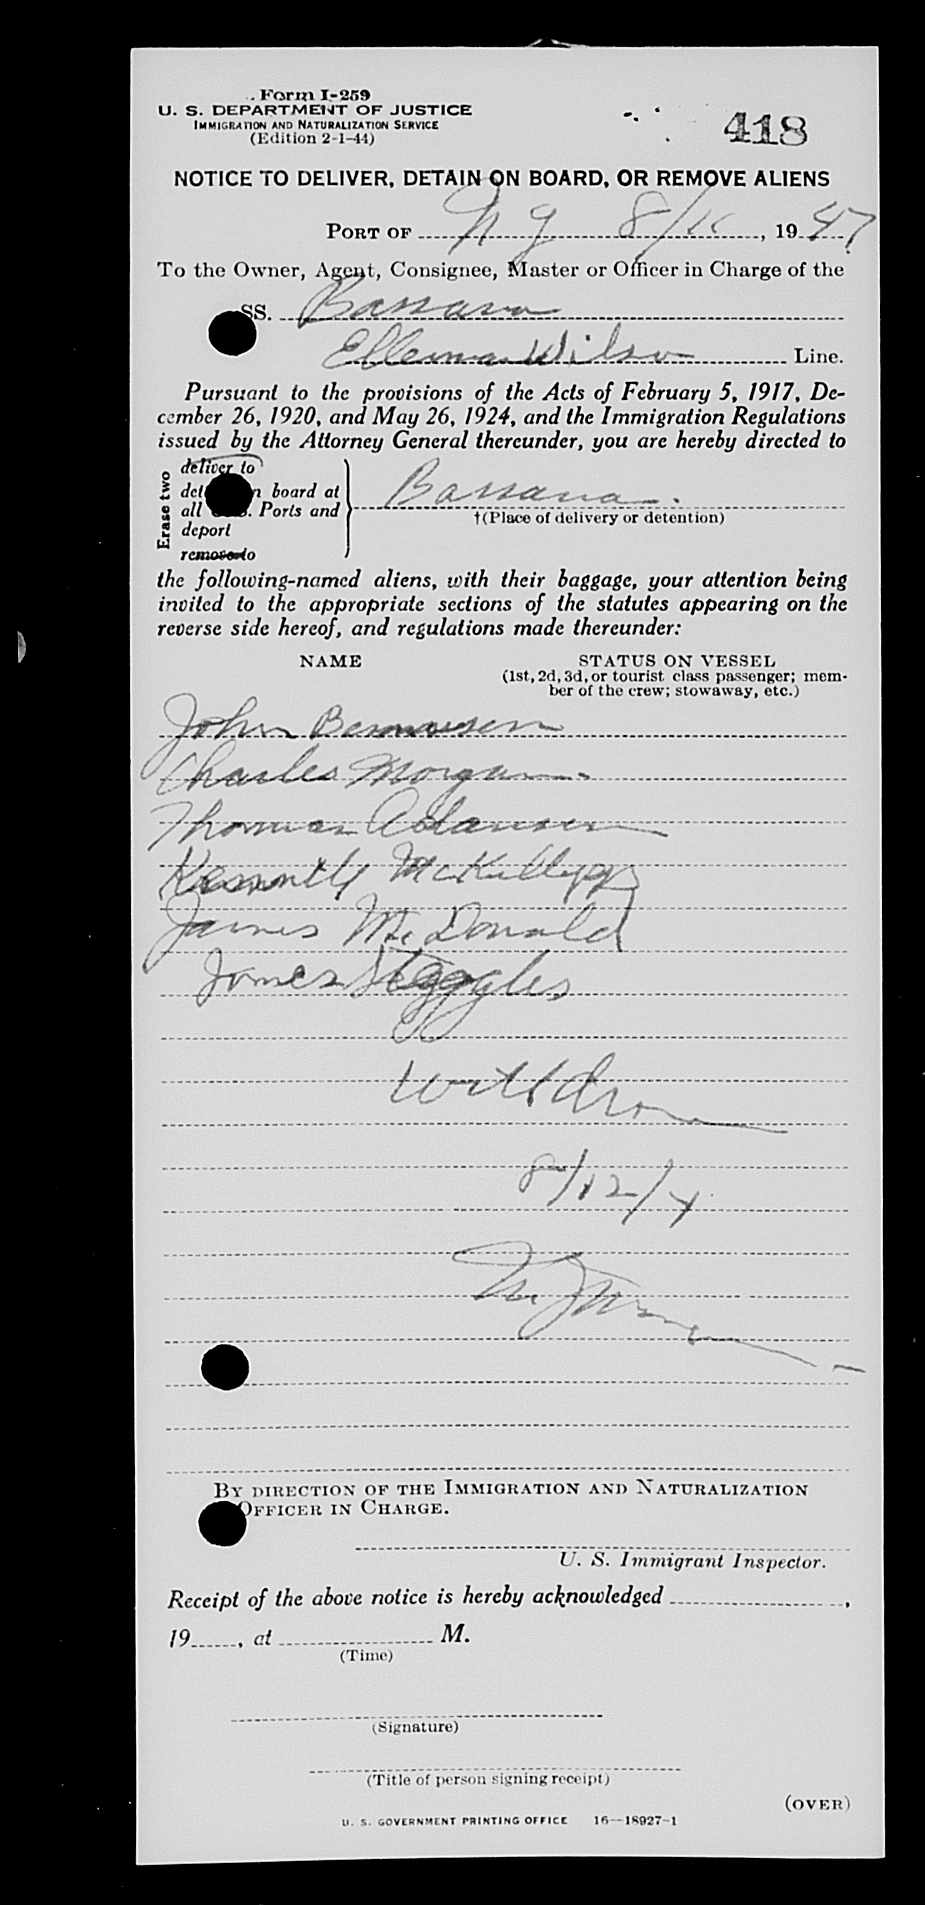 Form I-259
U. S. DEPARTMENT OF JUSTICE
IMMIGRATION AND NATURALIZATION SERVICE
(Edition 2-1-44)
418
NOTICE TO DELIVER, DETAIN ON BOARD, OR REMOVE ALIENS
PORT OF N Y 8/11, 19 47
To the Owner, Agent, Consignee, Master or Officer in Charge of the
SS. Bassano
Ellerman Wilson Line.
Pursuant to the provisions of the Acts of February 5, 1917, De-
cember 26, 1920, and May 26, 1924, and the Immigration Regulations
issued by the Attorney General thereunder, you are hereby directed to
Erase two
deliver to
board at
all Ports and
deport
remove to
Bassana.
†(Place of delivery or detention)
the following-named aliens, with their baggage, your attention being
invited to the appropriate sections of the statutes appearing on the
reverse side hereof, and regulations made thereunder:
NAME STATUS ON VESSEL
(1st, 2d, 3d, or tourist class passenger; mem-
ber of the crew; stowaway, etc.)
John
Charles Morgan
Thomas Adamsen
Kenneth McKillopp
James McDonald
James Steggles
8/12/4
BY DIRECTION OF THE IMMIGRATION AND NATURALIZATION
OFFICER IN CHARGE.
U. S. Immigrant Inspector.
Receipt of the above notice is hereby acknowledged ,
19 , at M.
(Time)
(Signature)
(Title of person signing receipt)
(OVER)
U. S. GOVERNMENT PRINTING OFFICE 16—18927-1